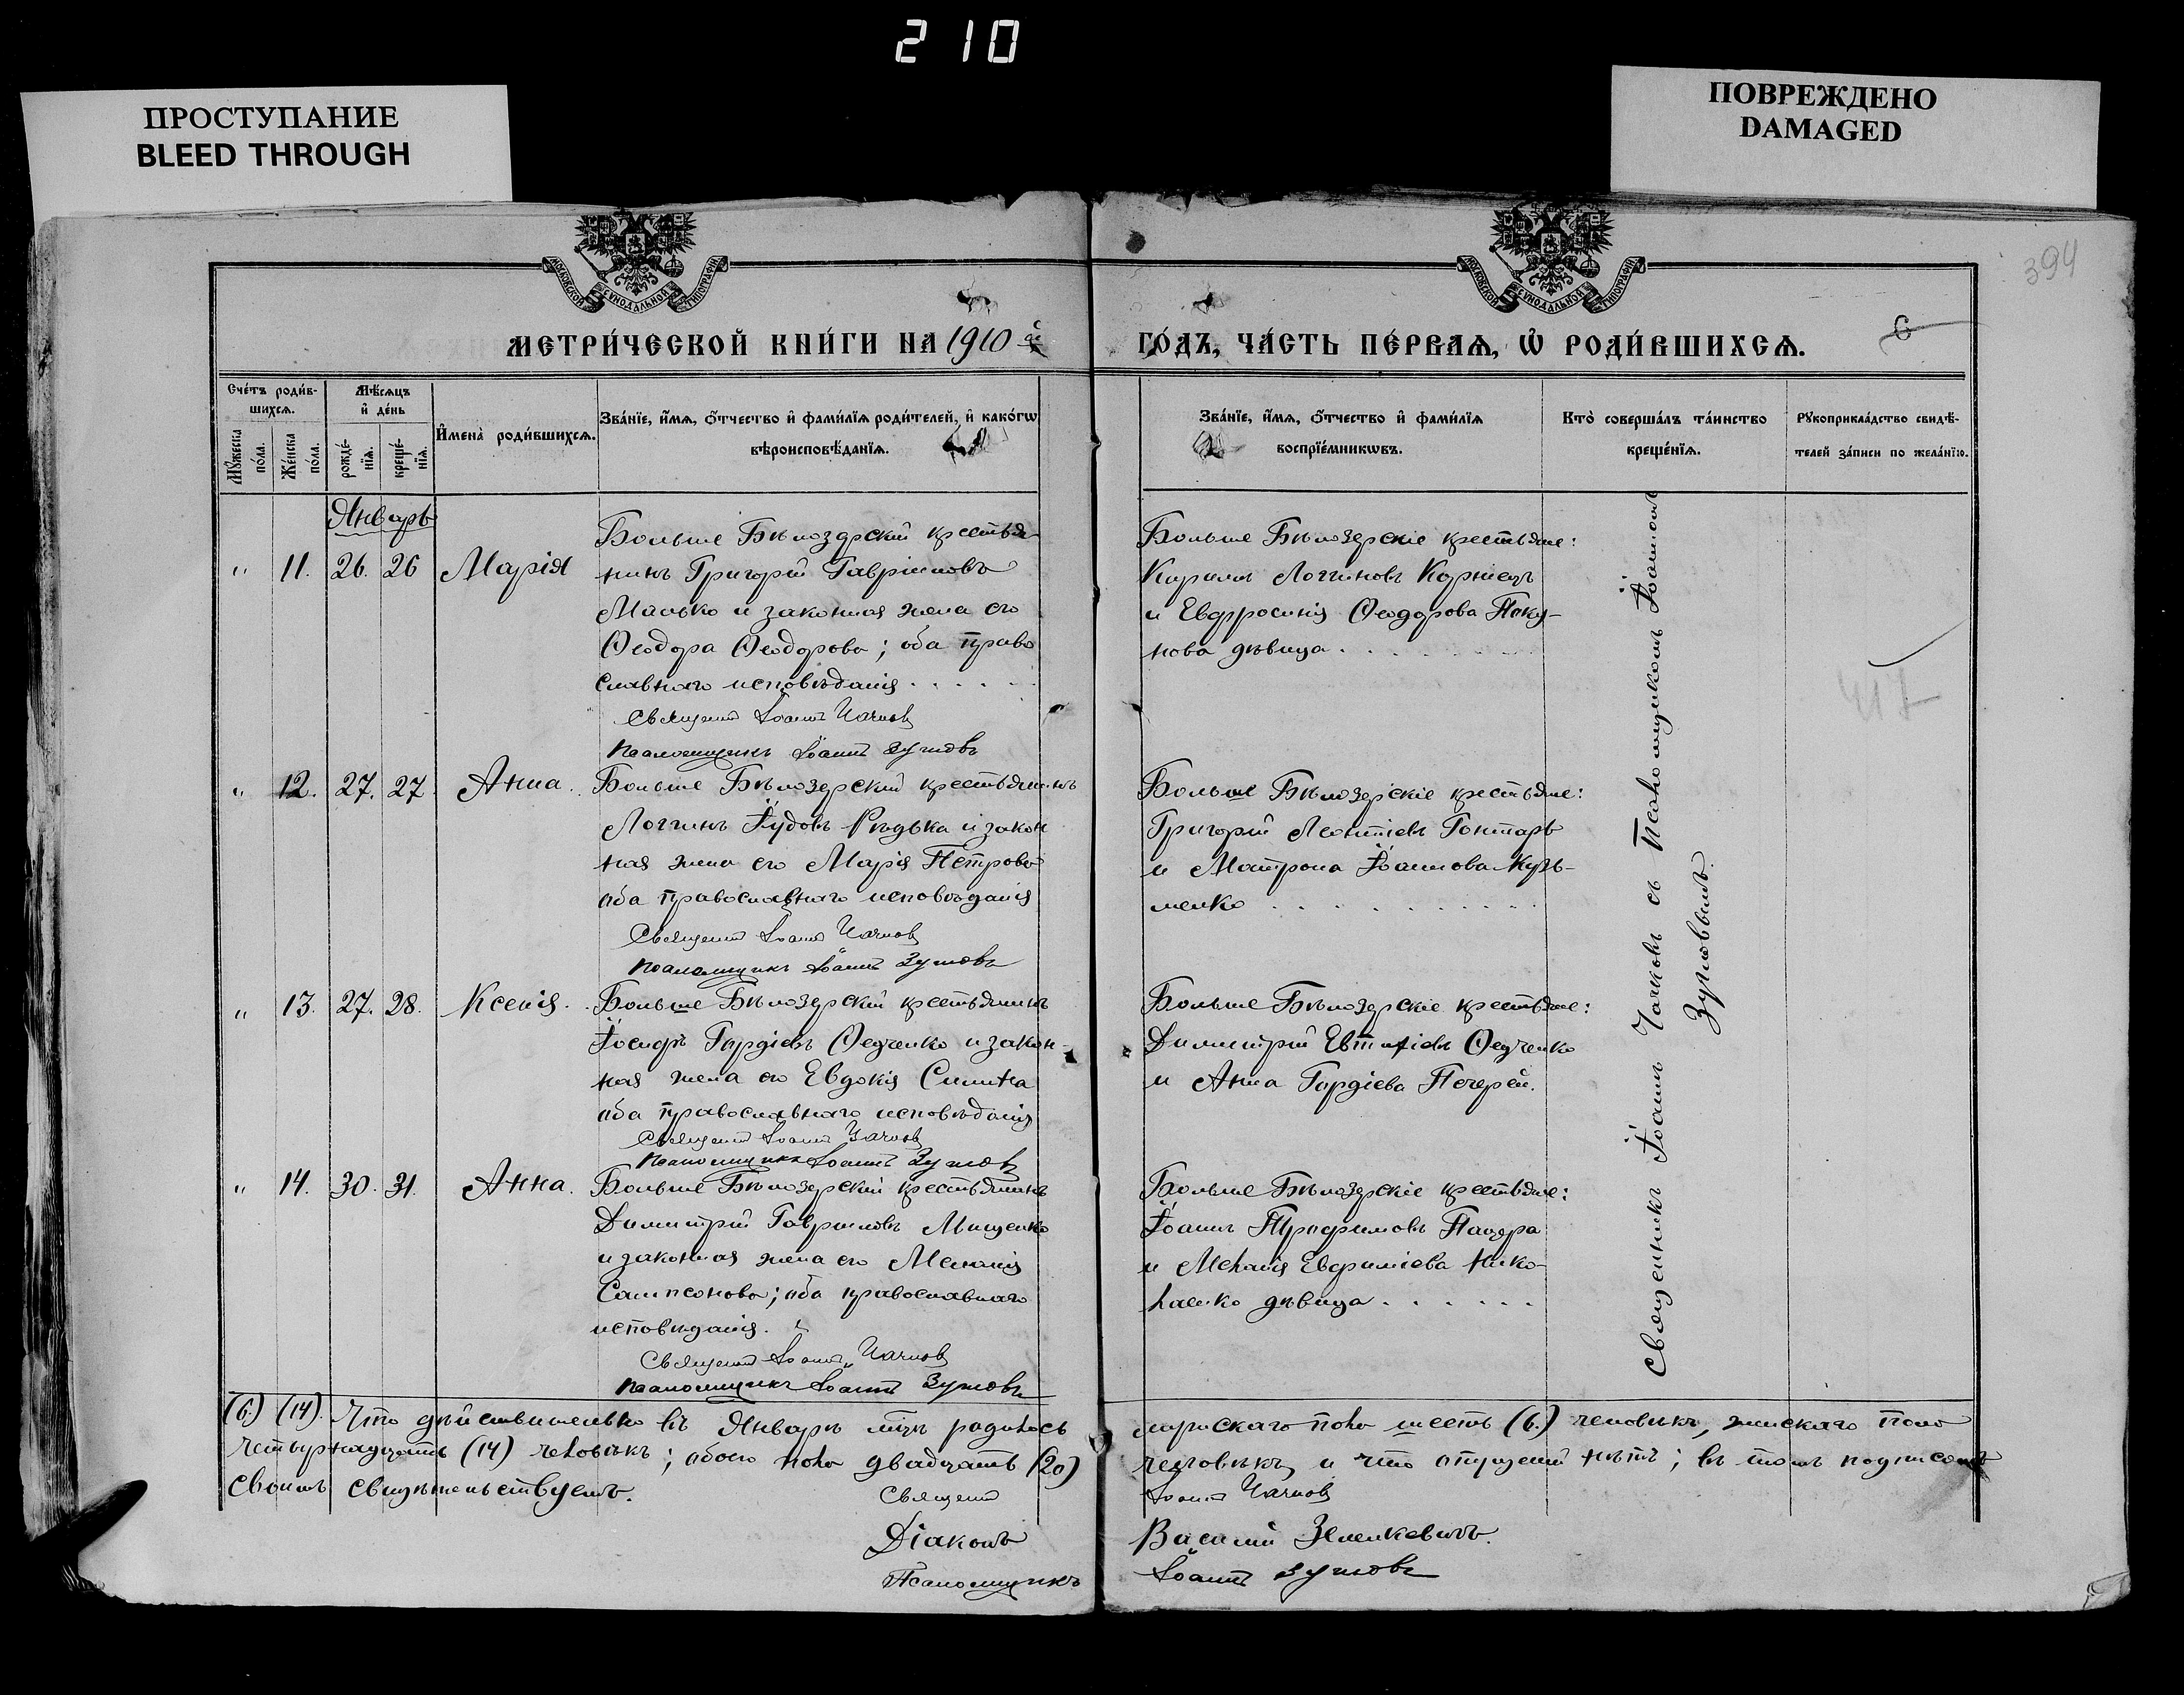 210
ПРОСТУПАНИЕ
BLEED THROUGH
ПОВРЕЖДЕНО
DAMAGED
394
МОСКОВСКОЙ СУНОДАЛЬНОЙ ТИПОГРАФІИ
МОСКОВСКОЙ СУНОДАЛЬНОЙ ТИПОГРАФІИ
МЕТРИ́ЧЕСКОЙ КНИ́ГИ НА 1910
ГО́ДЪ, ЧА́СТЬ ПЕ́РВАѦ, Ѡ҆ РОДИ́ВШИХСѦ.
Сче́тъ роди́в-
шихсѧ.
Мꙋ́жеска по́ла.
Же́нска по́ла.
Мѣ́сѧцъ
и҆ де́нь
рожде́-
нїѧ.
креще́-
нїѧ.
И҆мена̀ роди́вшихсѧ.
Зва́нїе, и҆́мѧ, ѻ҆́тчество и҆ фами́лїѧ роди́телей, и҆ како́гѡ
вѣроисповѣ́данїѧ.
Зва́нїе, и҆́мѧ, ѻ҆́тчество и҆ фами́лїѧ
воспрїе́мникѡвъ.
Кто̀ соверша́лъ та́инство
креще́нїѧ.
Рꙋкоприкла́дство свидѣ́-
телей за́писи по жела́нїю.
Январь
" 11. 26. 26 Марія
Больше Бѣлозерскій крестья
нинъ Григорій Гавріиловъ
Малько и законная жена его
Ѳеодора Ѳеодорова; оба право
славнаго исповѣданія . . . . .
Священ Іоаннъ Чачковъ
Псаломщикъ Іоаннъ Зуповъ
Больше Бѣлозерскіе крестьяне:
Кириллъ Логгиновъ
и Евфросинія Ѳеодорова
нова дѣвица . . . . .
" 12. 27. 27. Анна.
Больше Бѣлозерскій крестьянинъ
Логгинъ Іудовъ Рѣдька и закон
ная жена его Марія Петрова
оба православнаго исповѣданія
Священ Іоаннъ Чачковъ
Псаломщикъ Іоаннъ Зуповъ
Больше Бѣлозерскіе крестьяне:
Григорій Леонтіевъ Гонтарь
и Матрона Іоаннова Кузь-
менко . . . . .
" 13. 27. 28. Ксенія.
Больше Бѣлозерскій крестьянинъ
Іосифъ Гордіевъ Ѳедченко и закон-
ная жена его Евдокія
оба православнаго исповѣданія
Священ Іоаннъ Чачковъ
Псаломщикъ Іоаннъ Зуповъ
Больше Бѣлозерскіе крестьяне:
Димитрій Ѳедченко
и Анна Гордіева Печерей.
" 14. 30. 31. Анна.
Больше Бѣлозерскій крестьянинъ
Димитрій Гавриловъ Мищенко
и законная жена его Меланія
Сампсонова; оба православнаго
исповѣданія.
Священ Іоаннъ Чачковъ
Псаломщикъ Іоаннъ Зуповъ
Больше Бѣлозерскіе крестьяне:
Іоаннъ Трофимовъ
и Меланія Евфиміева Нико-
лаенко дѣвица . . . . .
Священникъ Іоаннъ Чачковъ съ Псаломщикомъ Іоанномъ
(6) (14). Что дѣйствительно въ Январѣ м-цѣ родилось
мужскаго пола шесть (6.) человѣкъ, женскаго пола
четырнадцать (14) человѣкъ; обоего пола двадцать (20)
человѣкъ и что опущеній нѣтъ; въ томъ подписомъ
своимъ свидѣтельствуемъ.
Священ
Іоаннъ Чачковъ
Діаконъ
Василій
Псаломщикъ
Іоаннъ Зуповъ